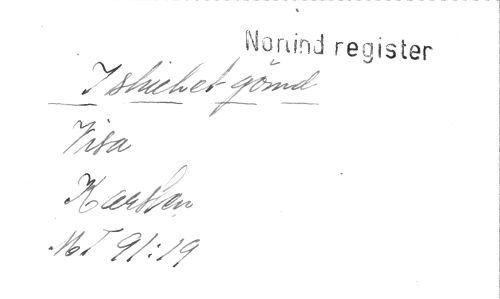 Norlind register
I skiulet gömd
Visa
Karsken
MT 91:19